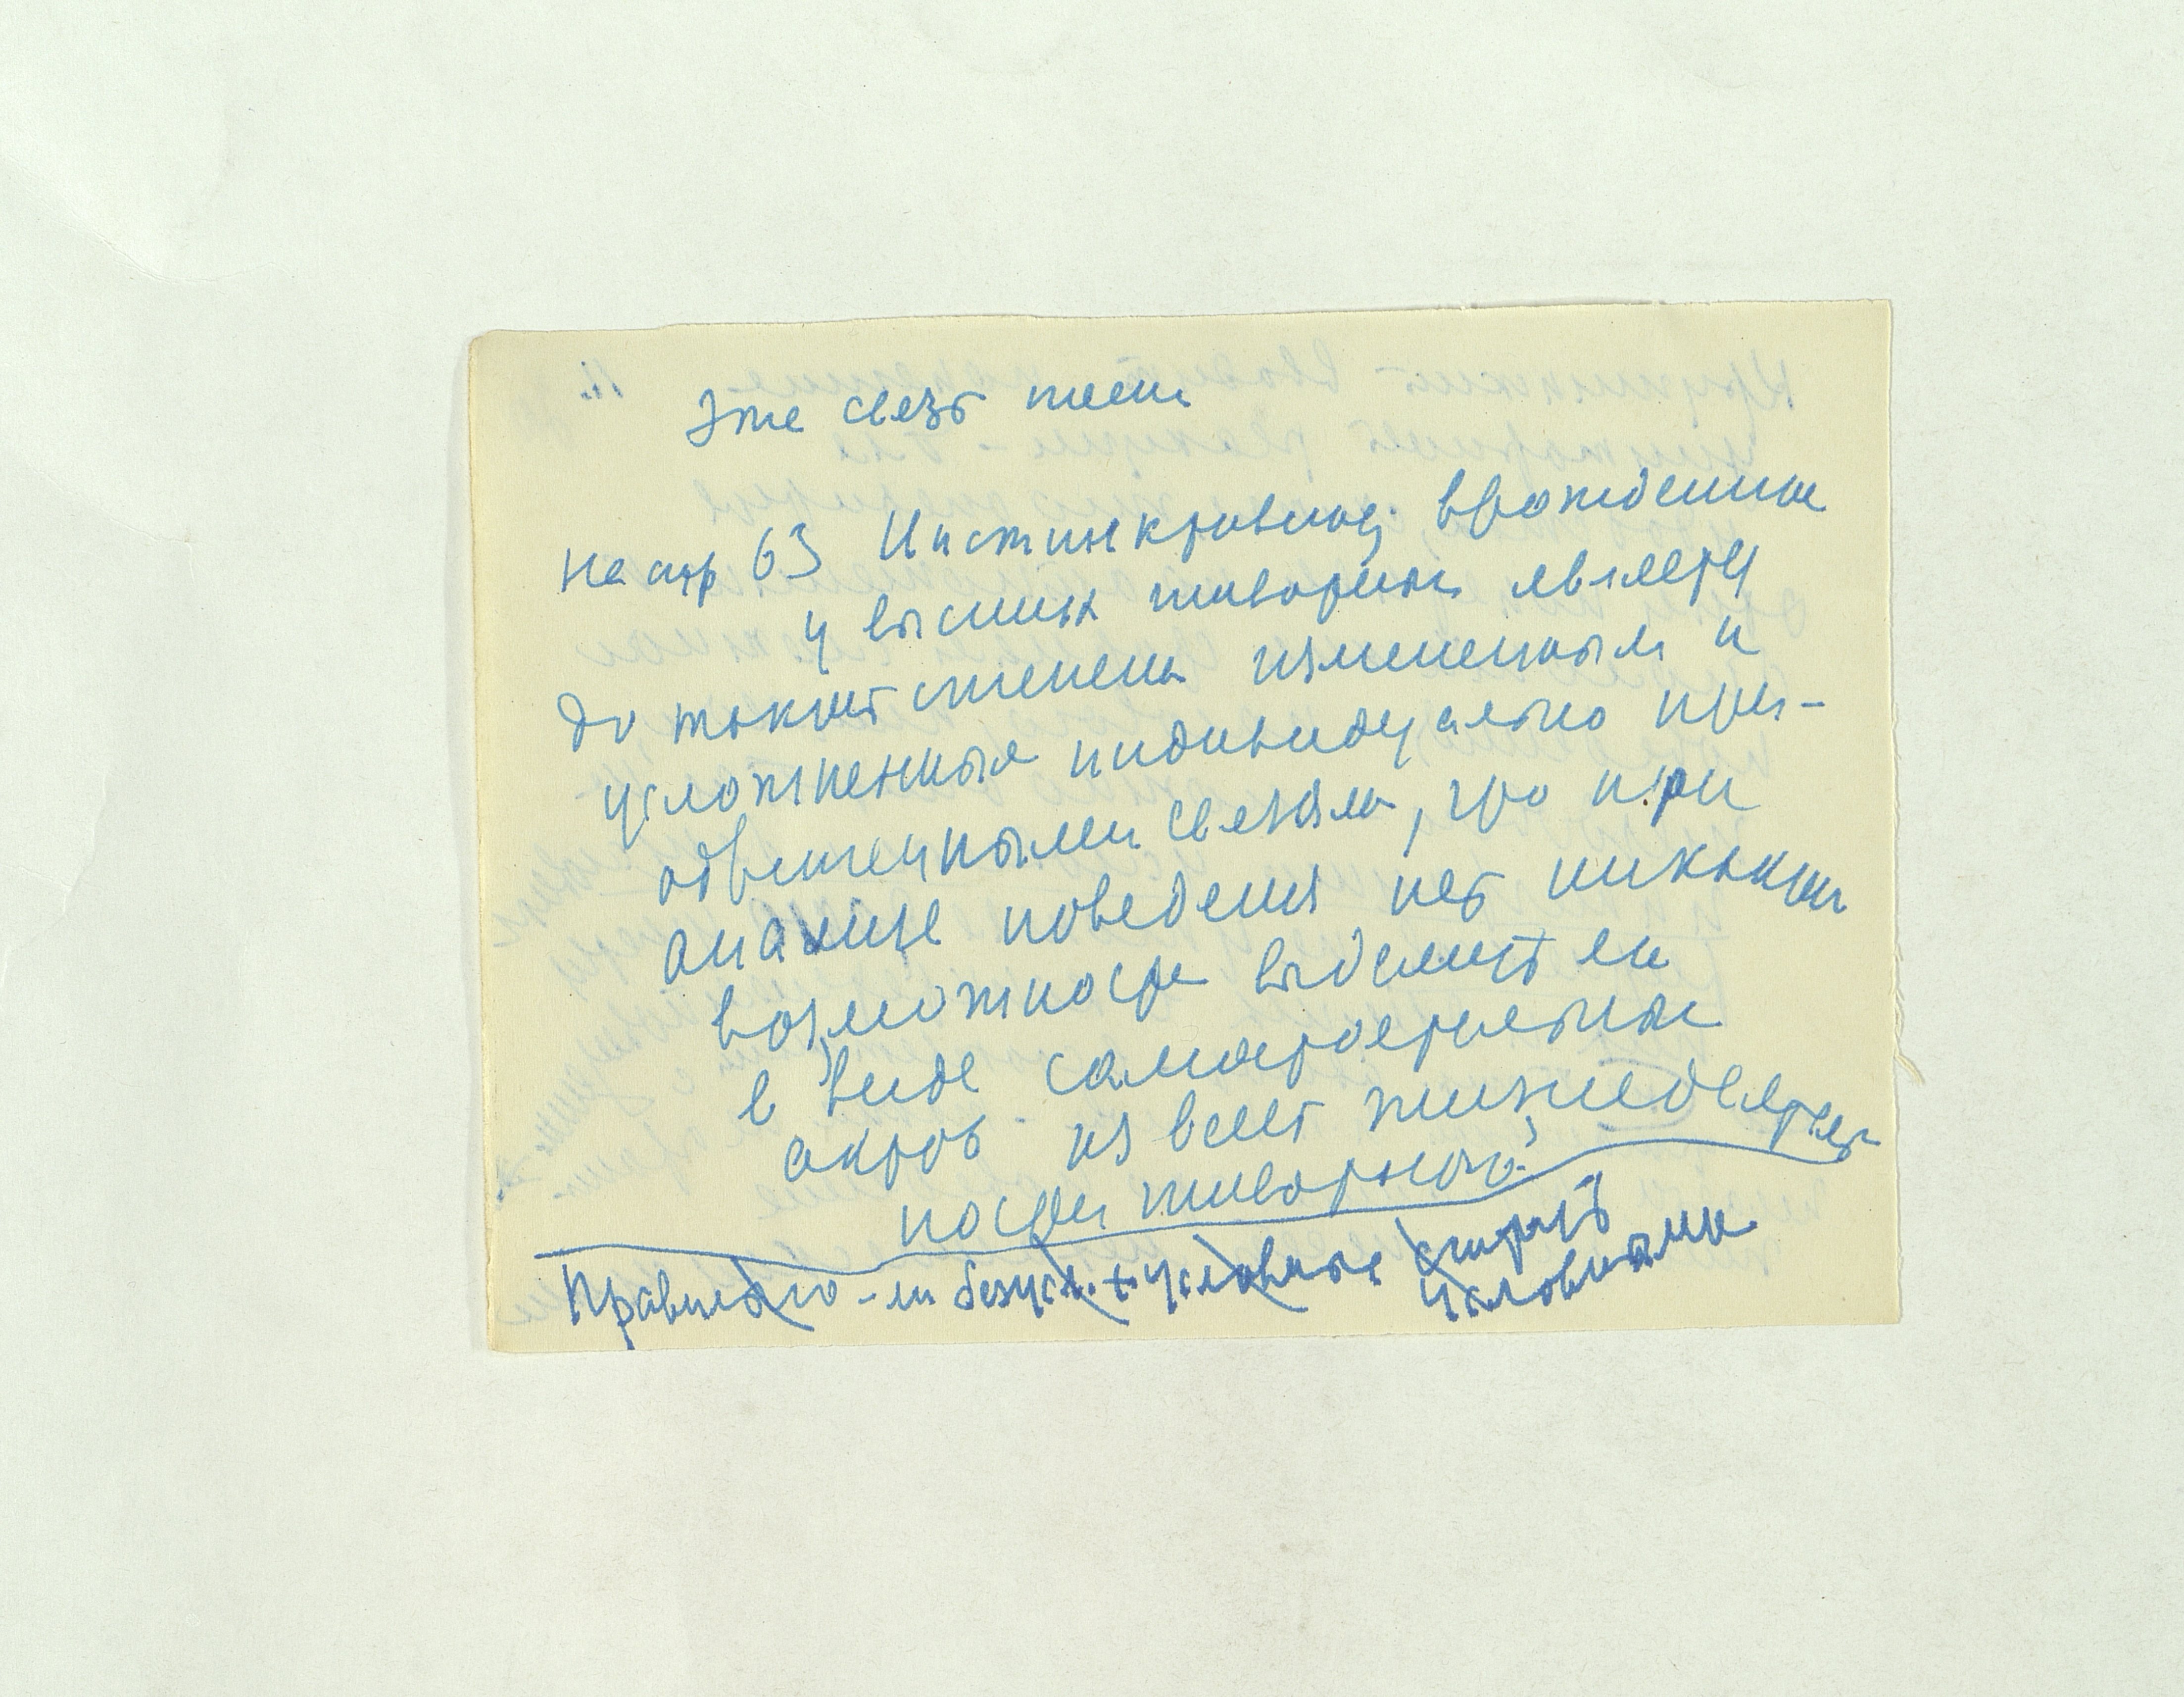 Эте связь теем
На стр 63 Инстинктивное, врожденное
у высших животных является
до такой степени измененным и
усложненным индивидуально при-
обретенными связями, что при
анализе поведения нет никакой
возможности выделить ли
в виде самостоятельных
актов из всей жизнедеятель-
ности животного.
Правильно-ли безусл. + условные считать
условными